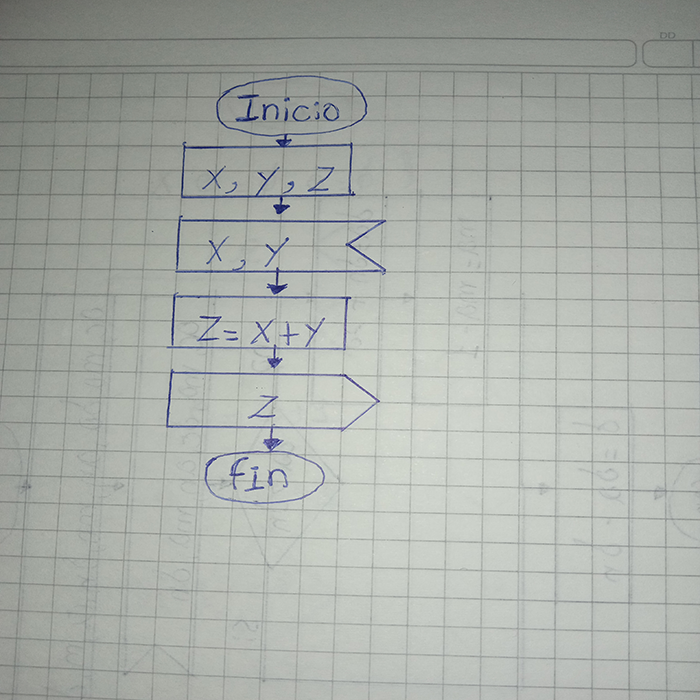 DD
Inicio
X, Y, Z
X, Y
Z = X + Y
Z
fin